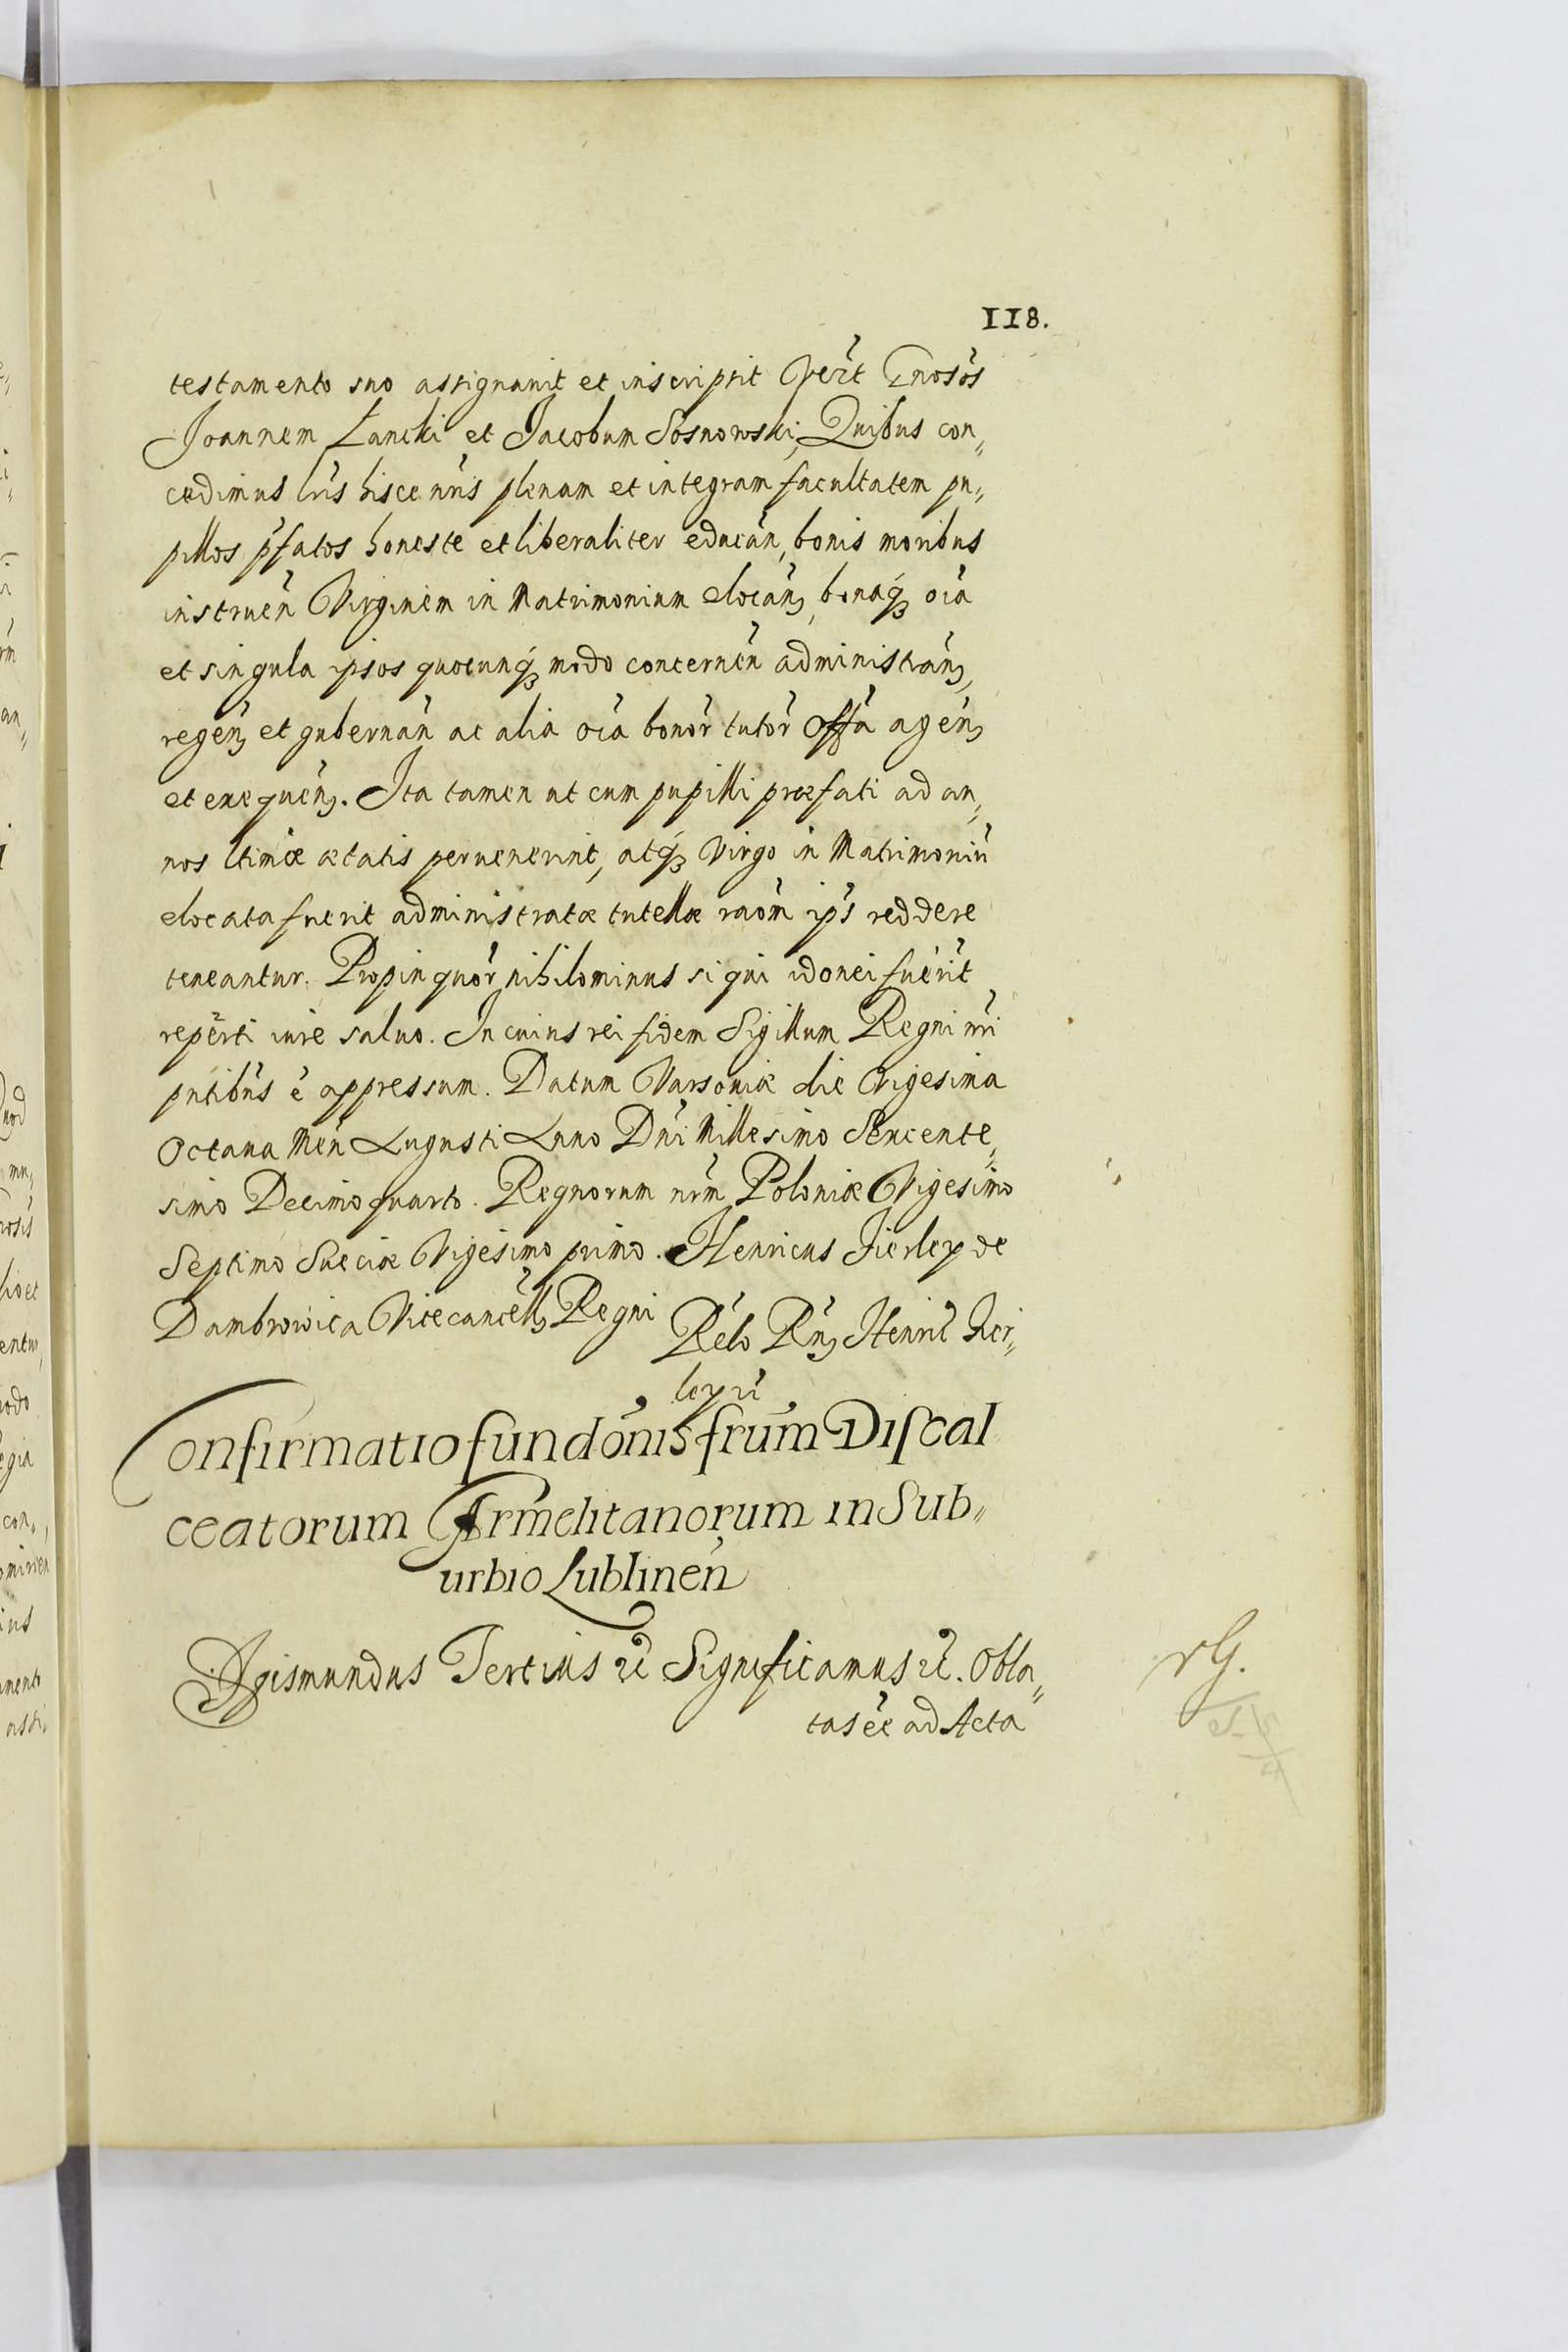 118.
testamento suo assignauit et inscripsit Gnosos
Joannem Łancki et Jacobum Sosnowski, Quibus con„
cedimus lris hisce nris plenam et integram facultatem pu„
pillos pfatos honeste et liberaliter educan, bonis moribus
instruen Virginem in Matrimonium elocan, bonaq3 oia
et singula ipsos quocunq3 modo concernen administran,
regen, et gubernan ac alia oia bonor tutor offa agen,
et exequen. Ita tamen ut cum pupilli præfati ad an„
nos ltimæ ætatis peruenerint, atq3 Virgo in Matrimoniu
elocata fuerit administratæ tutellæ raom ips reddere
teneantur. Propinquor nihilominus si qui idonei fuerit
reperti iure saluo. In cuius rei fidem Sigillum Regni nri
pntibus e appressum. Datum Varsouiæ die Vigesima
Octaua Men Augusti Anno Dni Millesimo Sexcente„
simo Decimo quarto. Regnorum nrm Poloniæ Vigesimo
Septimo Sueciæ Vigesimo primo. Henricus Firley de
Dambrowica Vicecancell, Regni Relo Rn, Henric Fir„
leyii
Confirmatio fundonis frum Discal
ceatorum Carmelitanorum in Sub„
urbio Lublinen
Sigismundus Tertius etc Significamus etc. Obla„
tas ee ad Acta
rG.